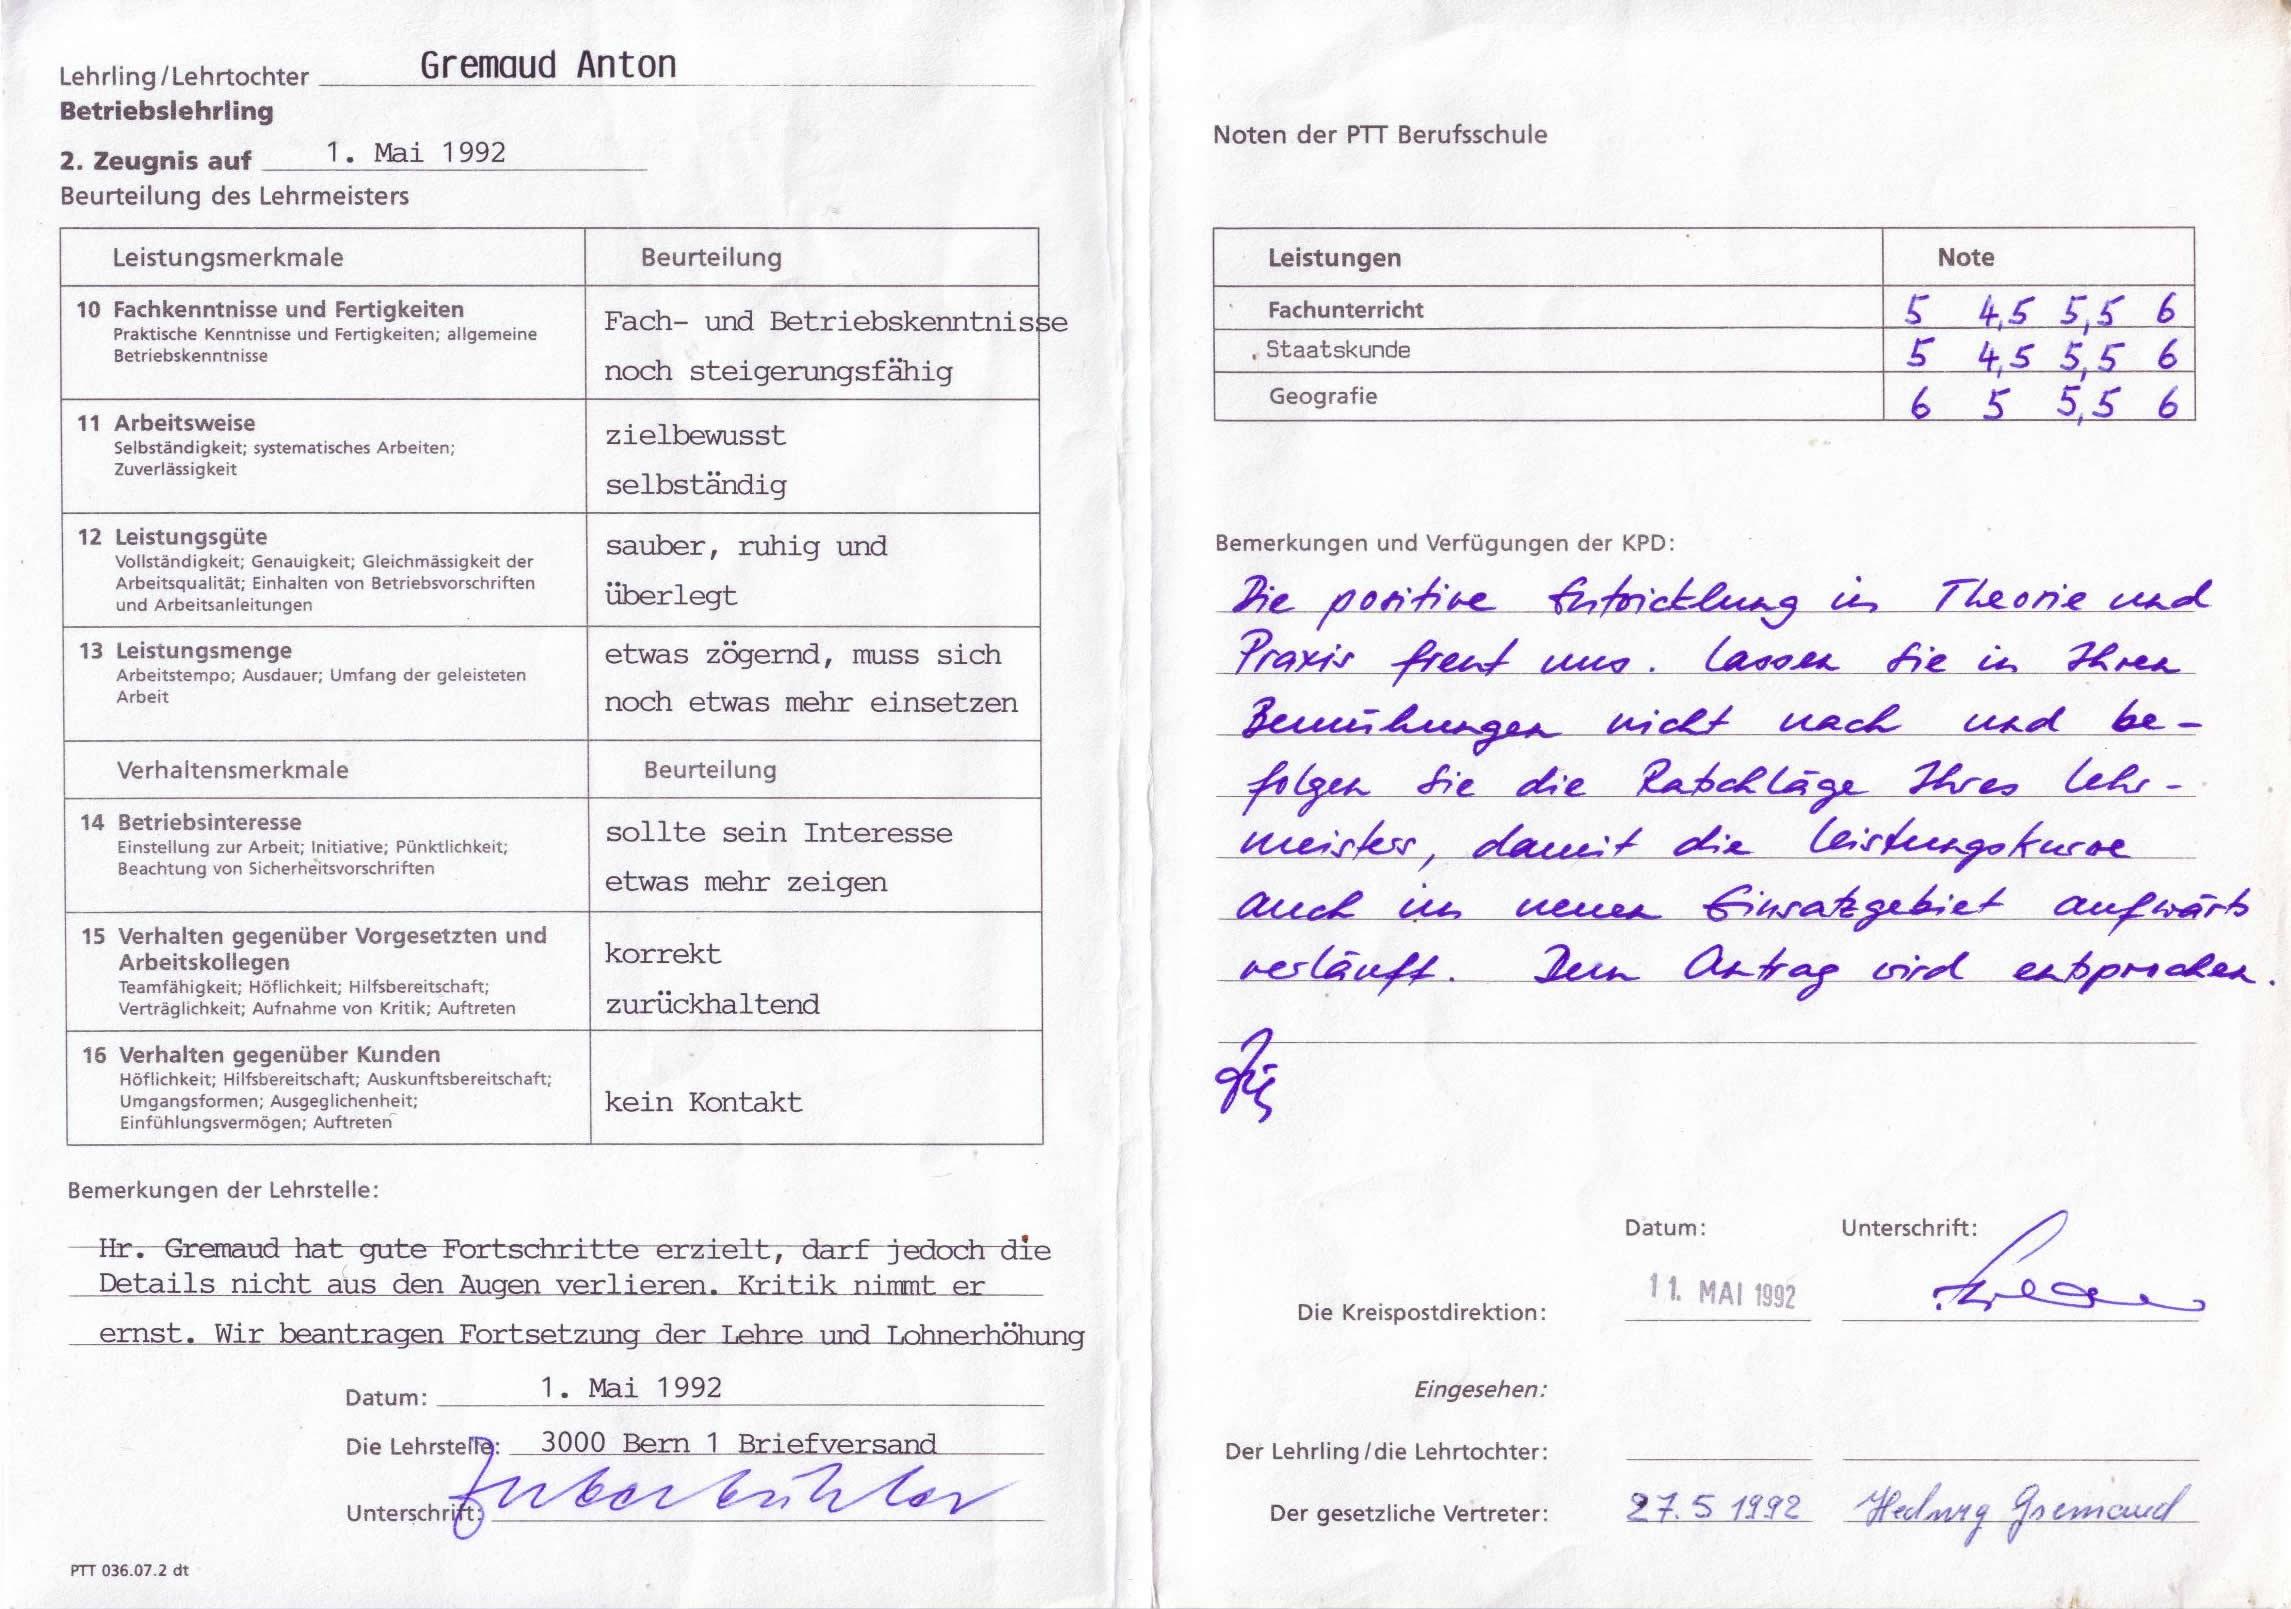 Lehrling/Lehrtochter Gremaud Anton
Betriebslehrling
2. Zeugnis auf 1. Mai 1992
Beurteilung des Lehrmeisters
Leistungsmerkmale Beurteilung
10 Fachkenntnisse und Fertigkeiten
Praktische Kenntnisse und Fertigkeiten; allgemeine
Betriebskenntnisse
Fach- und Betriebskenntnisse
noch steigerungsfähig
11 Arbeitsweise
Selbständigkeit; systematisches Arbeiten;
Zuverlässigkeit
zielbewusst
selbständig
12 Leistungsgüte
Vollständigkeit; Genauigkeit; Gleichmässigkeit der
Arbeitsqualität; Einhalten von Betriebsvorschriften
und Arbeitsanleitungen
sauber, ruhig und
überlegt
13 Leistungsmenge
Arbeitstempo; Ausdauer; Umfang der geleisteten
Arbeit
etwas zögernd, muss sich
noch etwas mehr einsetzen
Verhaltensmerkmale Beurteilung
14 Betriebsinteresse
Einstellung zur Arbeit; Initiative; Pünktlichkeit;
Beachtung von Sicherheitsvorschriften
sollte sein Interesse
etwas mehr zeigen
15 Verhalten gegenüber Vorgesetzten und
Arbeitskollegen
Teamfähigkeit; Höflichkeit; Hilfsbereitschaft;
Verträglichkeit; Aufnahme von Kritik; Auftreten
korrekt
zurückhaltend
16 Verhalten gegenüber Kunden
Höflichkeit; Hilfsbereitschaft; Auskunftsbereitschaft;
Umgangsformen; Ausgeglichenheit;
Einfühlungsvermögen; Auftreten
kein Kontakt
Bemerkungen der Lehrstelle:
Hr. Gremaud hat gute Fortschritte erzielt, darf jedoch die
Details nicht aus den Augen verlieren. Kritik nimmt er
ernst. Wir beantragen Fortsetzung der Lehre und Lohnerhöhung
Datum: 1. Mai 1992
Die Lehrstelle: 3000 Bern 1 Briefversand
Unterschrift:
PTT 036.07.2 dt
Noten der PTT Berufsschule
Leistungen Note
Fachunterricht 5 4,5 5,5 6
Staatskunde 5 4,5 5,5 6
Geografie 6 5 5,5 6
Bemerkungen und Verfügungen der KPD:
Die positive Entwicklung in Theorie und
Praxis freut uns. Lassen Sie in Ihren
Bemühungen nicht nach und be-
folgen Sie die Ratschläge Ihres Lehr-
meisters, damit die Leistungskurve
auch im neuen Einsatzgebiet aufwärts
verläuft. Dem Antrag wird entsprochen.
Datum: Unterschrift:
Die Kreispostdirektion: 11. MAI 1992
Eingesehen:
Der Lehrling/die Lehrtochter:
Der gesetzliche Vertreter: 27.5 1992 Hedwig Gremaud